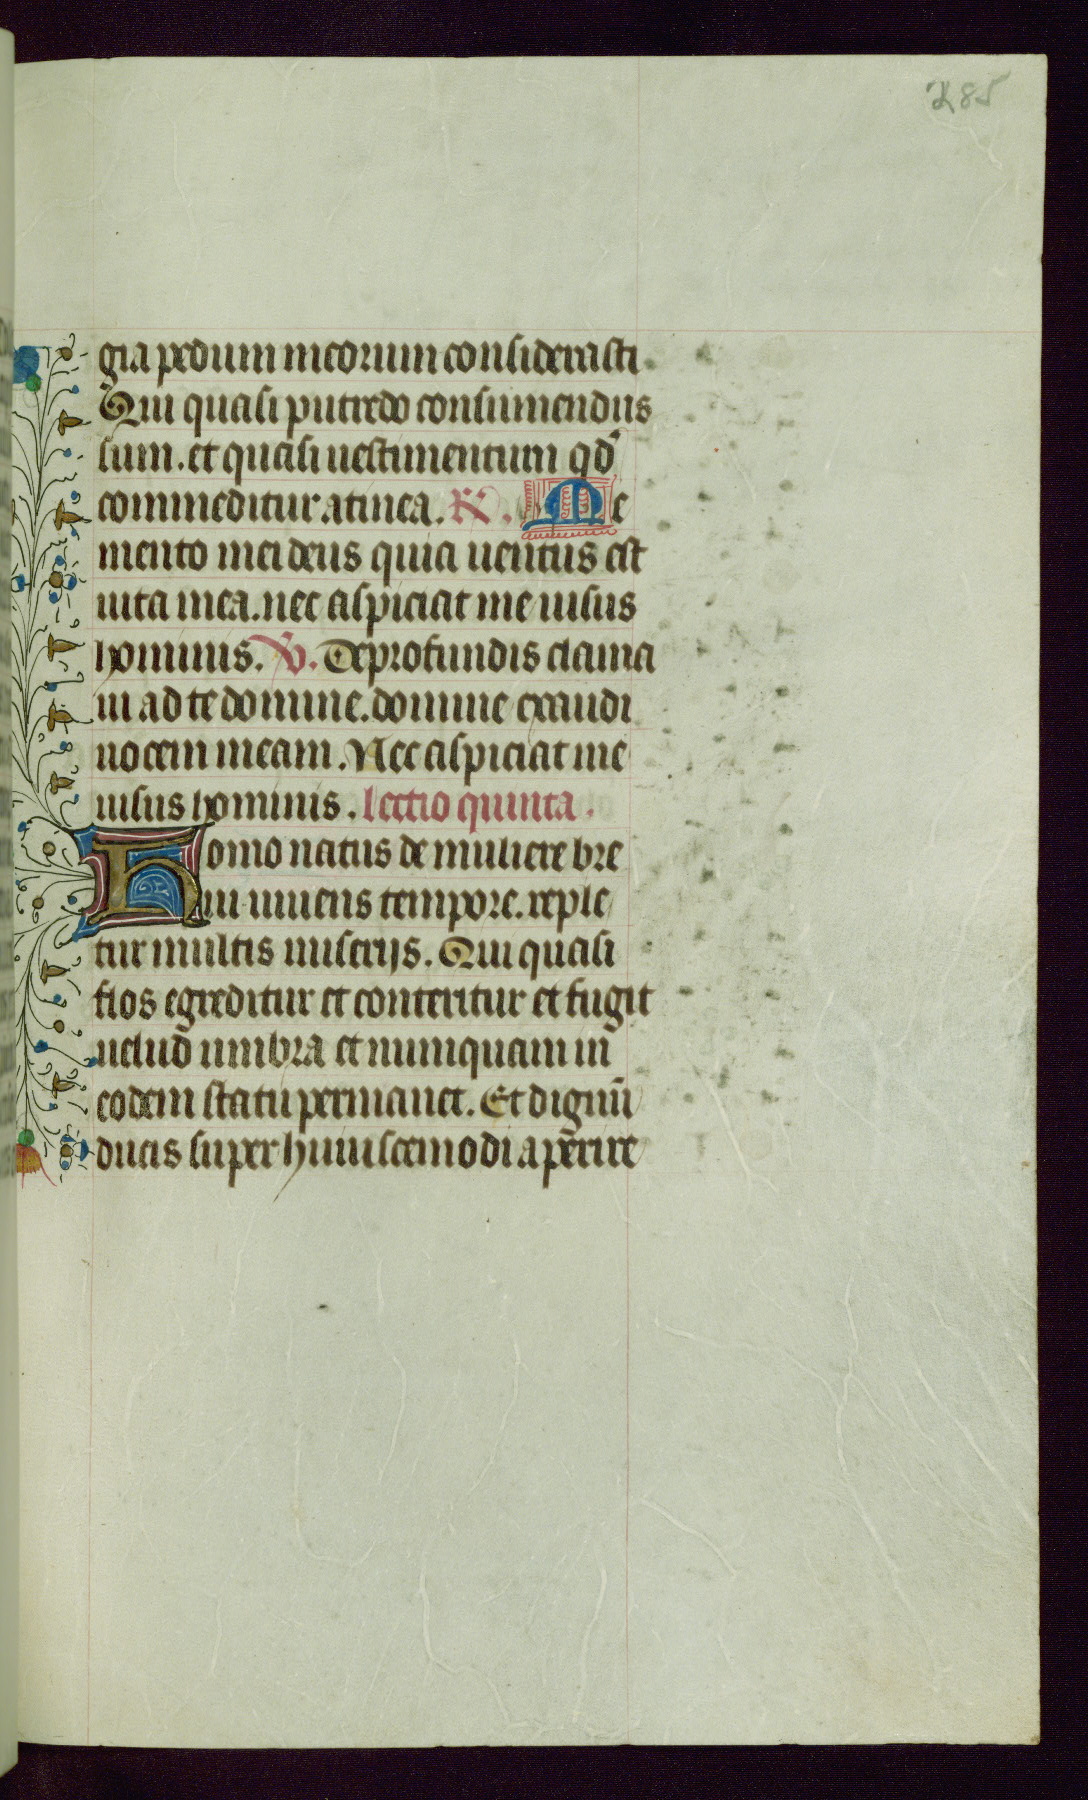 285
gia pedum meorum considerasti.
Qui quasi putredo consumendus
sum. et quasi uestimentum qd̕
commeditur a tinea. R̸. Me
mento mei deus quia uentus est
uita mea. nec aspiciat me uisus
hominis. V̸. De profundis clama
ui ad te domine. domine exaudi
uocem meam. Nec aspiciat me
uisus hominis. lectio quinta.
Homo natus de muliere bre
ui uiuens tempore. reple
tur multis miserijs. Qui quasi
flos egreditur et conteritur et fugit
uelud umbra et numquam in
eodem statu permanet. Et dignū
ducis super huiuscemodi aperire